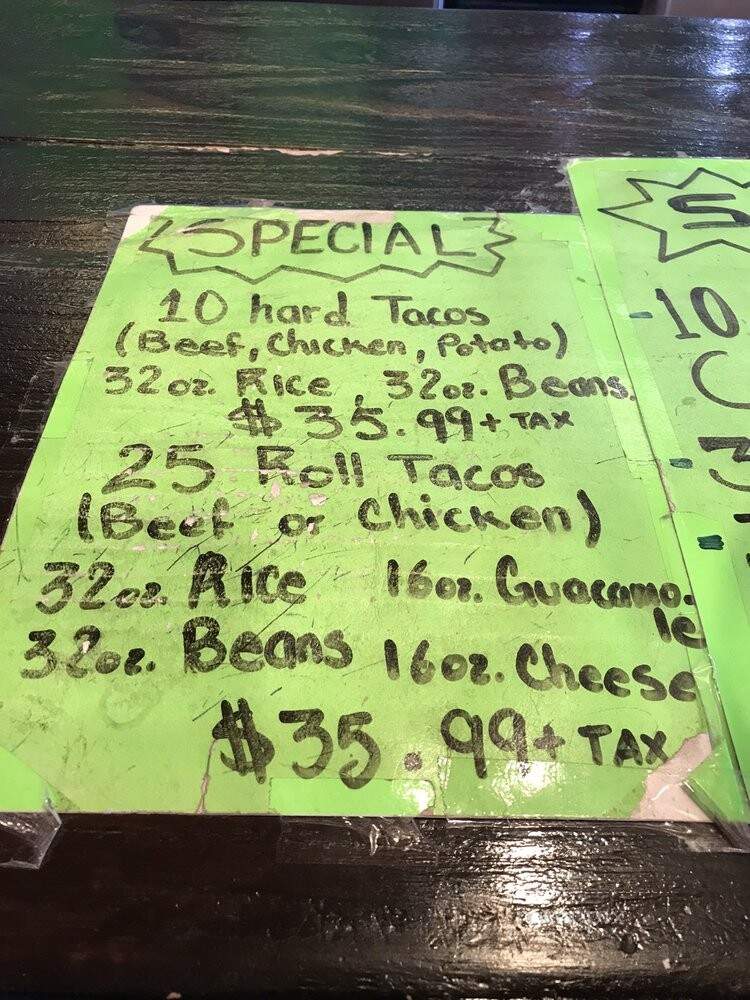 SPECIAL
10 hard Tacos
(Beef, Chicken, Potato)
32oz. Rice, 32oz. Beans.
$35.99+ TAX
25 Roll Tacos
(Beef or Chicken)
32oz. Rice 16oz. Guacamo.
le
32oz. Beans 16oz. Cheese
$35.99+ TAX
S
-10